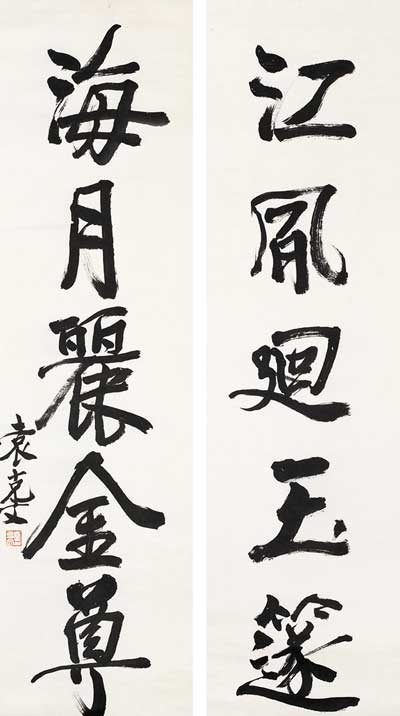 江風廻玉篴
海月麗金尊
袁克文